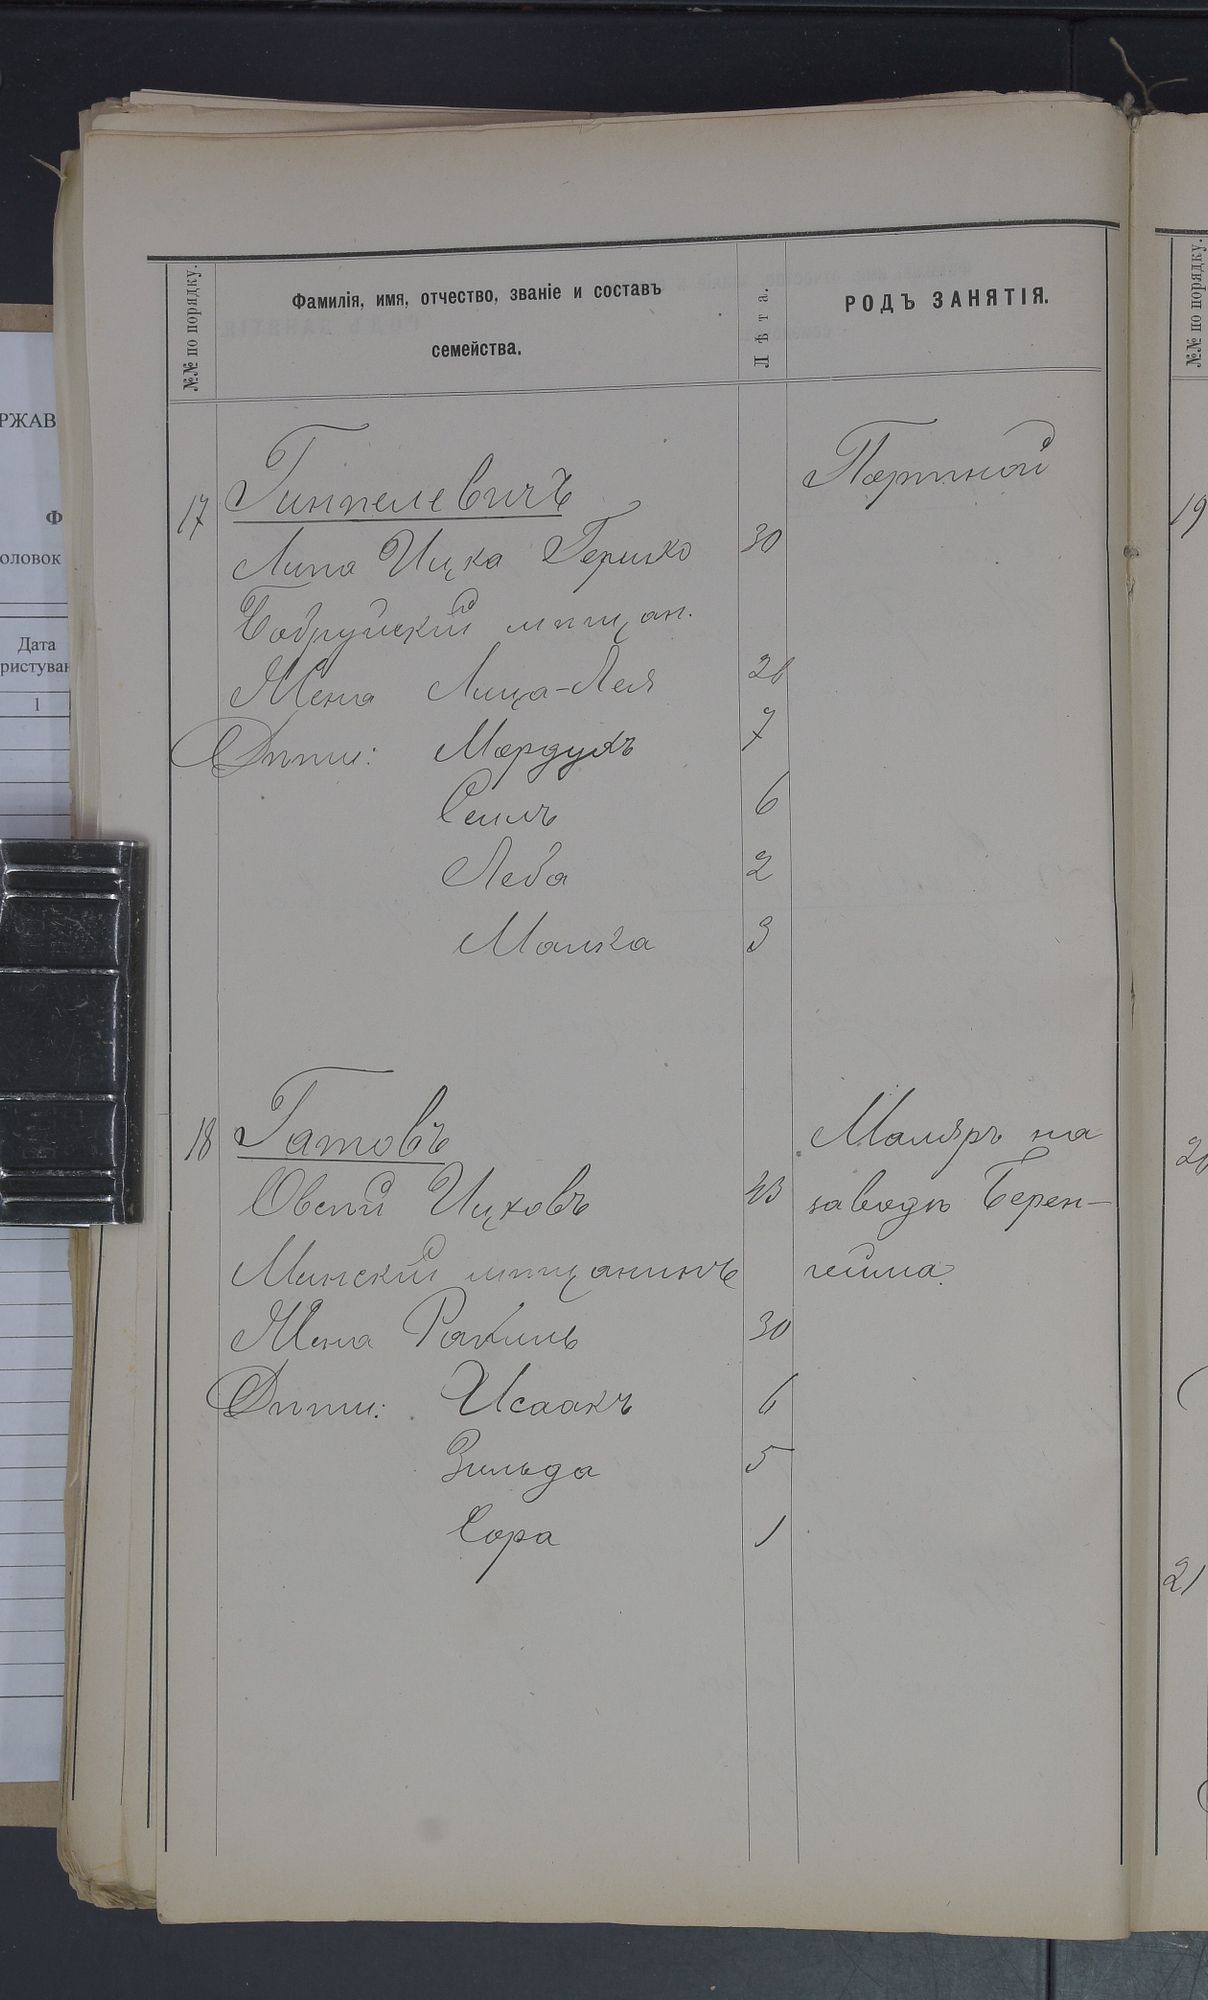 №№ по порядку.
Фамилія, имя, отчество, званіе и составъ
семейства.
Лѣта.
РОДЪ ЗАНЯТІЯ.
№№ по порядку.
РЖАВ
Ф
оловок
Дата
ристуван
1
17 Гинпелевичъ Портной
Липа Ицка Гершко 30
Бобруйскій мѣщан.
Жена Лица-Лея 26
Дѣти: Мордухъ 7
6
Леба 2
Малка 3
18 Гатовъ Маляръ на
Овсѣй Ицковъ 43 заводѣ Берен-
Минскій мѣщанинъ гейма.
Жена Рахиль 30
Дѣти: Исаакъ 6
Зильда 5
Сора 1
19
21